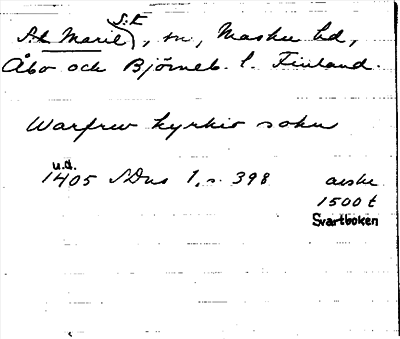 S:t
S:t Marie), sn, Masku hd,
Åbo och Björneb. l. Finland.
Warfrw kyrkio sokn
u.d.
1405 SDns 1, s. 398 avskr
1500 t
Svartboken